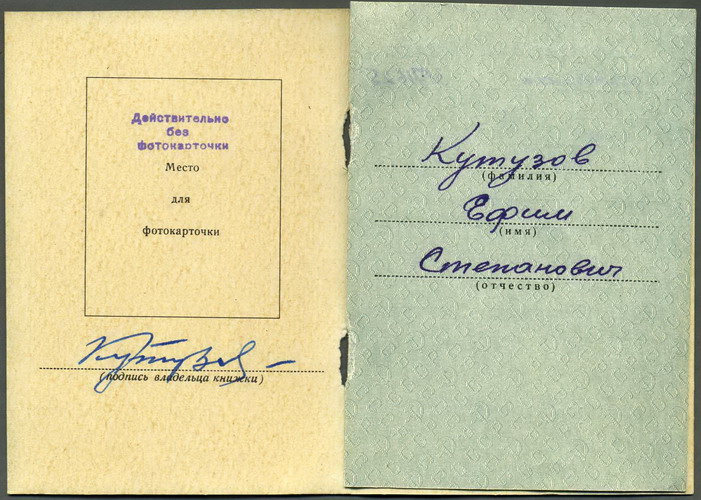 Действительно
без
фотокарточки
Место
для
фотокарточки
(подпись владельца книжки)
Кутузов
(фамилия)
Ефим
(имя)
Степанович
(отчество)